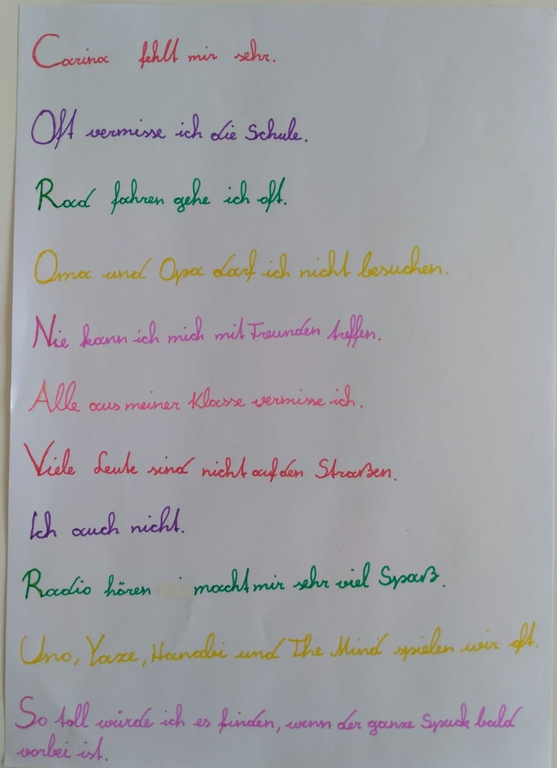 Carina fehlt mir sehr.
Oft vermisse ich die Schule.
Rad fahren gehe ich oft.
Oma und Opa darf ich nicht besuchen.
Nie kann ich mich mit Freunden treffen.
Alle aus meiner Klasse vermisse ich.
Viele Leute sind nicht auf den Straßen.
Ich auch nicht.
Radio hören macht mir sehr viel Spaß.
Uno, Yaze, Hanabi und The Mind spielen wir oft.
So toll würde ich es finden, wenn der ganze Spuck bald
vorbei ist.